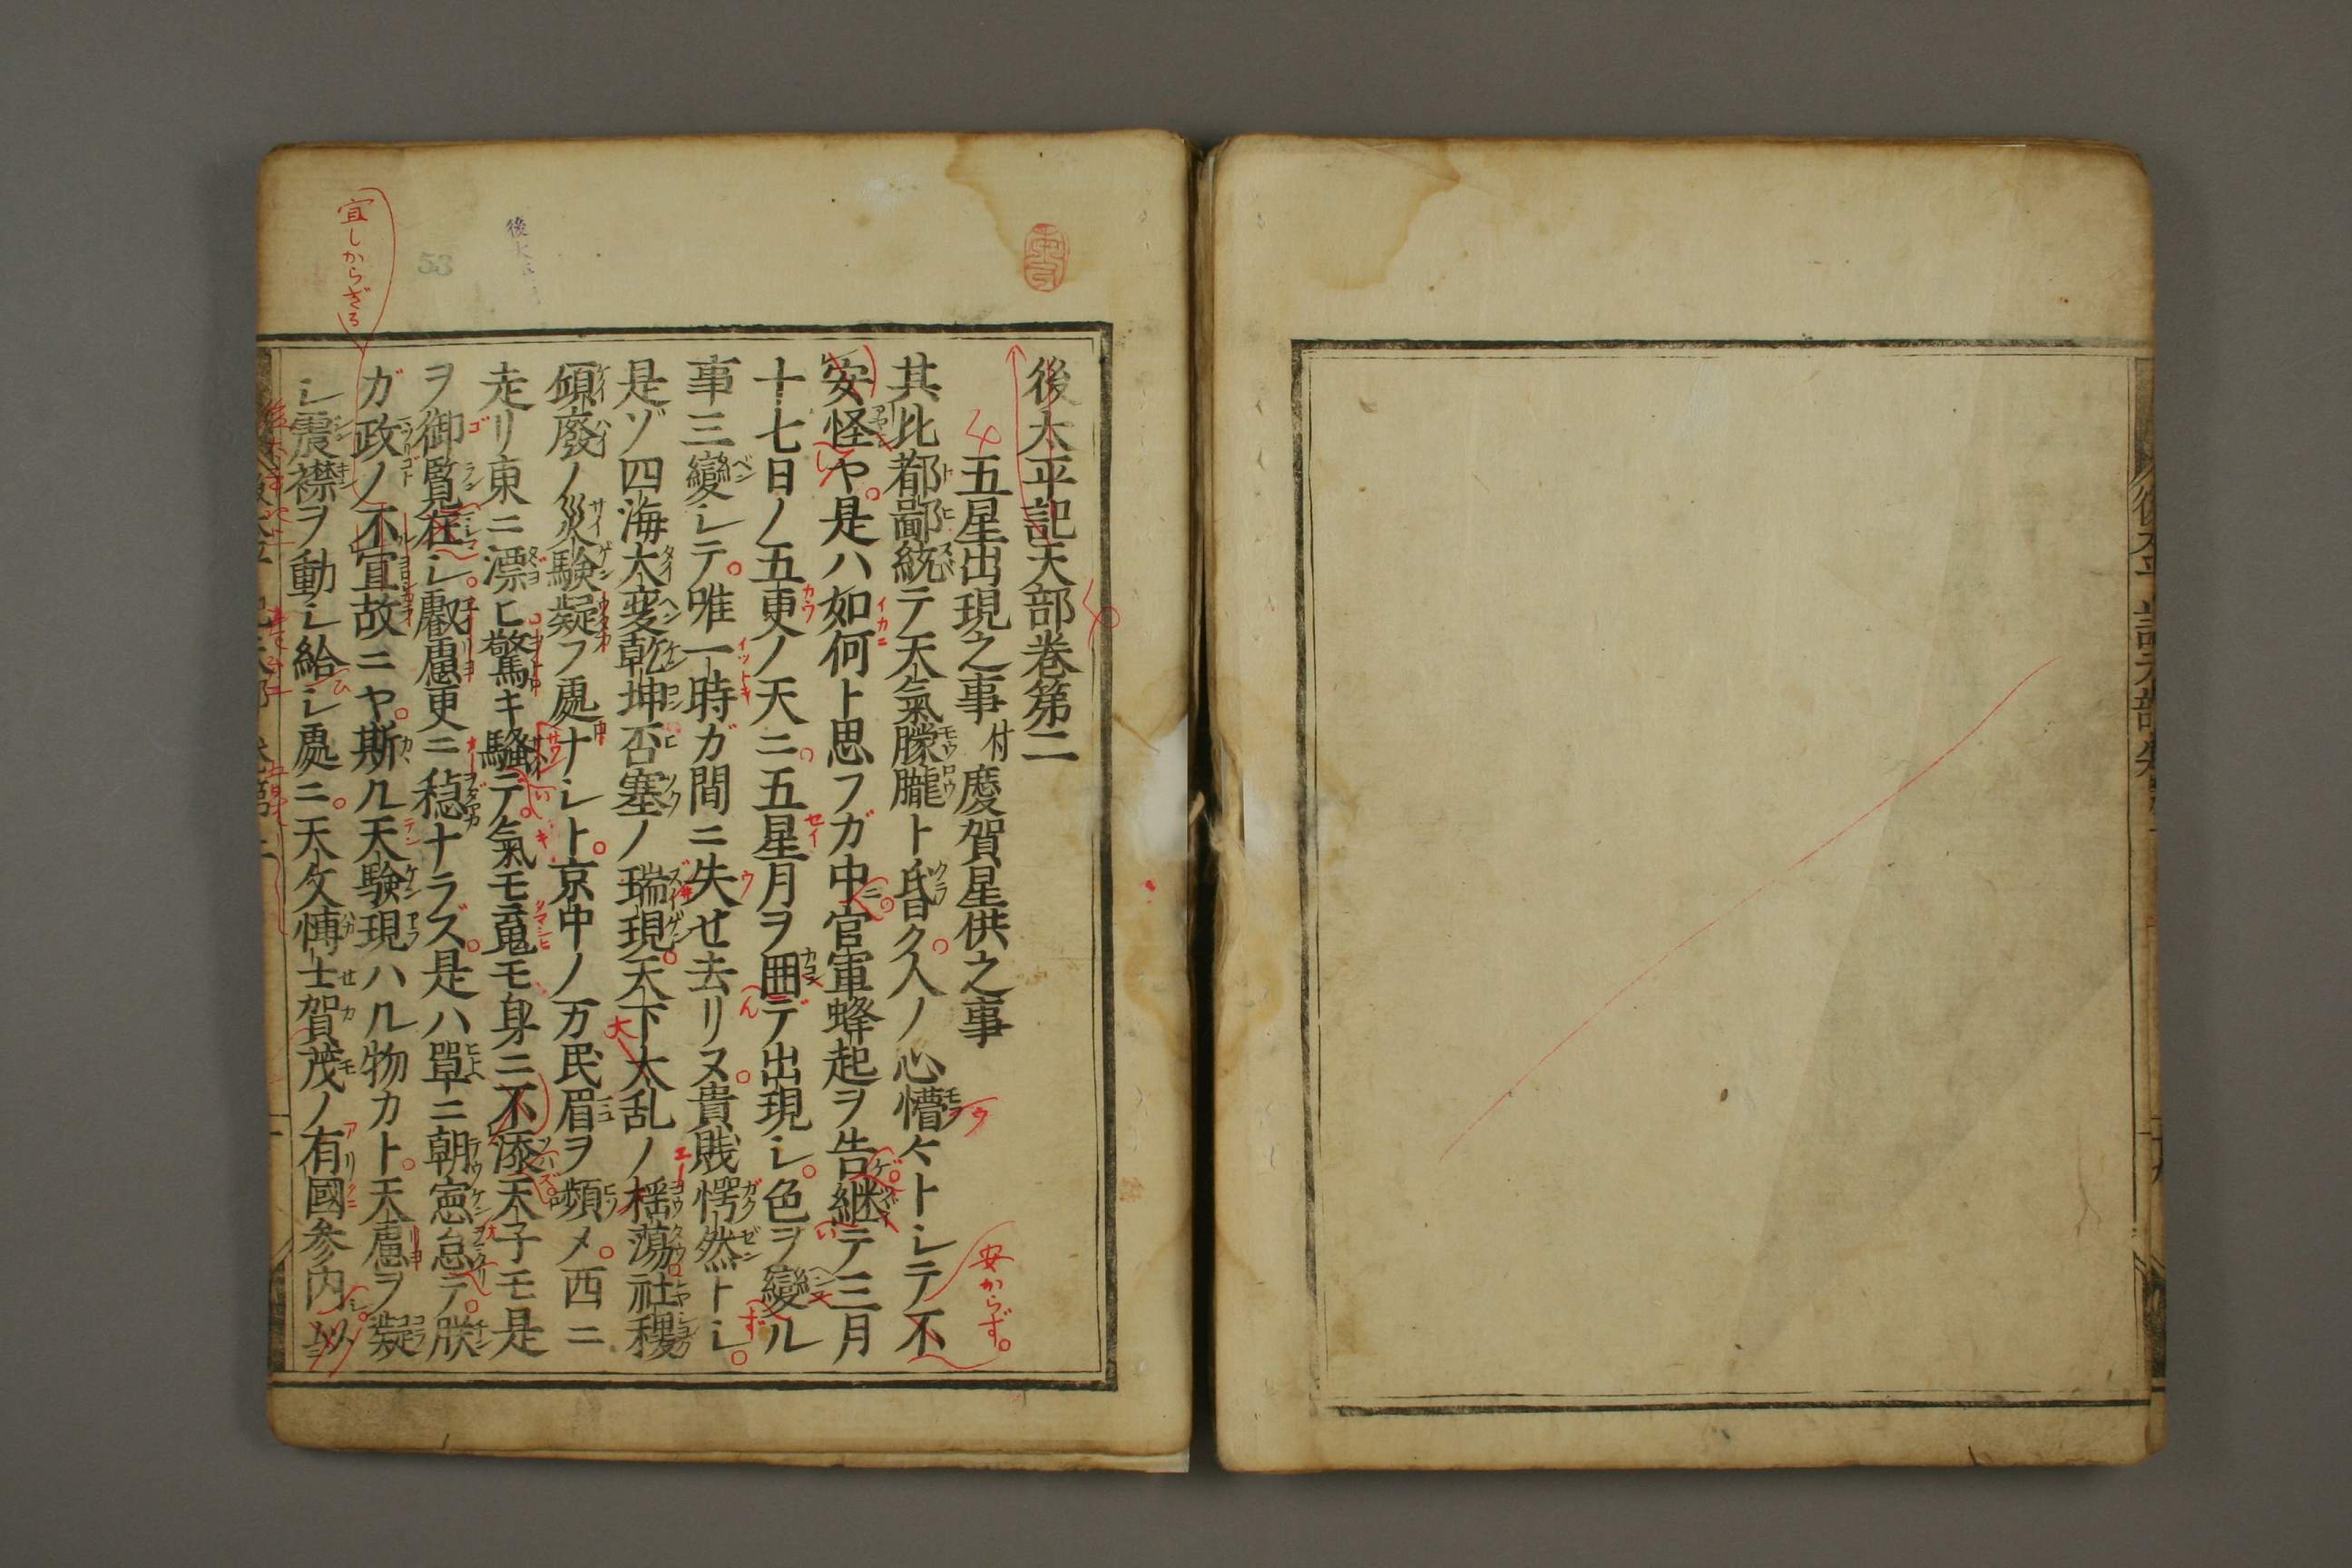 後太平記天部卷第二
五星出現之事付慶賀星供之事
其比都鄙統テ天氣朦朧ト昏ク人ノ心懵々トシテ不
安怪ヤ是ハ如何ト思フガ中官軍蜂起ヲ告継テ三月
十七日ノ五更ノ天ニ五星月ヲ囲デ出現シ色ヲ變ル
事三變シテ唯一時ガ間ニ失せ去リヌ貴賎愕然トシ
是ゾ四海太変乾坤否塞ノ瑞現天下太乱ノ揺蕩社稷
傾廢ノ災験疑フ處ナシト京中ノ万民眉ヲ頻メ西ニ
走リ東ニ漂ヒ驚キ騒テ氣モ䰟モ身ニ不添天子モ是
ヲ御覧在シ叡慮更ニ穏ナラズ是ハ單ニ朝憲怠テ朕
ガ政ノ不宜故ニヤ斯ル天験現ハル物カト天慮ヲ凝
シ震襟ヲ動シ給シ處ニ天文愽士賀茂ノ有國参内以
宜しからざる
安からず。